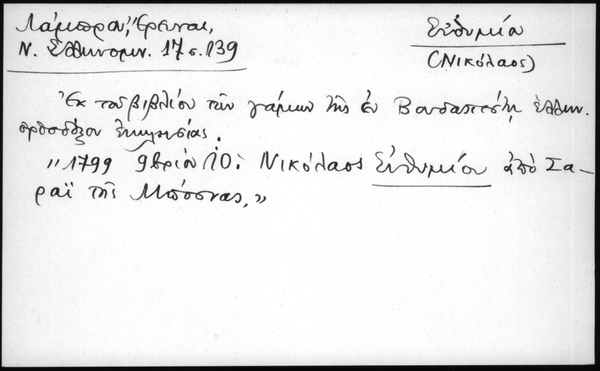 Λάμπρου, Ἔρευναι,
Ν. Ἑλληνομν. 17 σ. 139
Εὐθυμίου
(Νικόλαος)
Ἐκ τοῦ βιβλίου τῶν γάμων τῆς ἐν Βουδαπέστῃ ἑλλην.
ὀρθοδόξου ἐκκλησίας.
"1799 9βρίου 10: Νικόλαος Εὐθυμίου ἀπὸ Σα-
ραϊ τῆς Μπόσνας,"